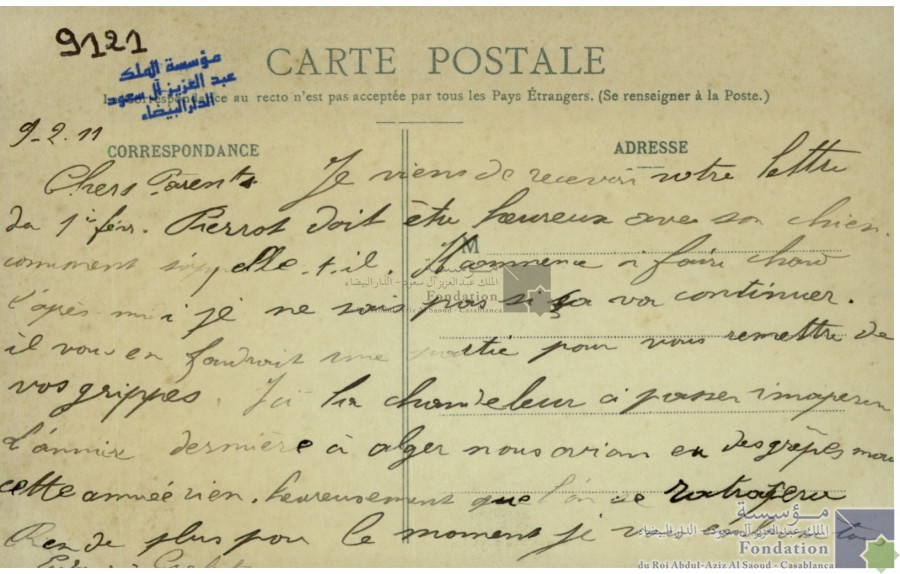 9121
مؤسسة الملك
عبد العزيز آل سعود
الدار البيضاء
CARTE POSTALE
La Correspondance au recto n'est pas acceptée par tous les Pays Étrangers. (Se renseigner à la Poste.)
9-2.11
CORRESPONDANCE
ADRESSE
Chers Parents Je viens de recevoir votre lettre
du 1er févr. Pierrot doit être heureux avec son chien.
M
comment s'appelle-t-il. Il commence a faire chaud
l'après midi je ne sais pas si ça va continuer.
il vous en faudrait une partie pour vous remettre de
vos grippes. Ici la chandeleur a passer
l'année dernière à alger nous avian eu des
cette année rien. heureusement que l'on se
Rien de plus pour le moment je
مؤسسة
الملك عبد العزيز آل سعود - الدار البيضاء
Fondation
du Roi Abdul-Aziz Al Saoud - Casablanca
مؤسسة
الملك عبد العزيز آل سعود - الدار البيضاء
Fondation
du Roi Abdul-Aziz Al Saoud - Casablanca